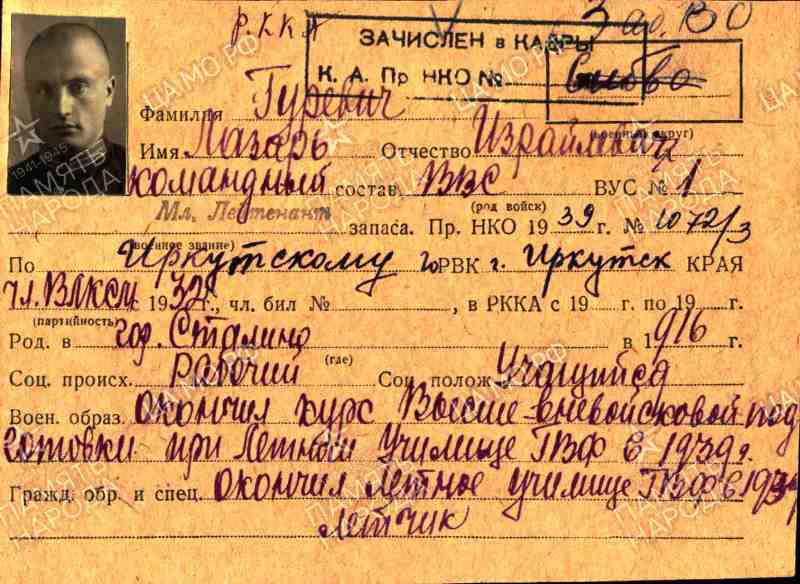 Р.К.К.А
ЗАЧИСЛЕН в КАДРЫ
К. А. Пр НКО №
(военный округ)
Фамилия Гуревич
Имя Лазарь Отчество Израйлевич
командный состав ВВС ВУС № 1
(род войск)
Мл. Лейтенант запаса. Пр. НКО 1939 г. № 1072/3
(военное звание)
По Иркутскому го РВК г. Иркутск КРАЯ
чл. ВЛКСМ с 1932 г., чл. бил № , в РККА с 19 г. по 19 г.
(партийность)
Род. в гор. Сталино в 1916 г.
(где)
Соц. происх. Рабочий Соц полож. Учащийся
Воен. образ. окончил курс Высше-вневойсковой под
готовки при Летным Училище ГВФ в 1939 г.
Гражд. обр. и спец. окончил летное училище ГВФ в
летчик
1941-1945
ПАМЯТЬ
НАРОДА
ЦАМО.РФ